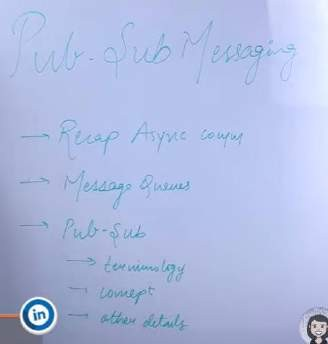 Pub-Sub Messaging
→ Recap Async comm
→ Message Queues
→ Pub-Sub
→ terminology
→ concept
→ other details
in